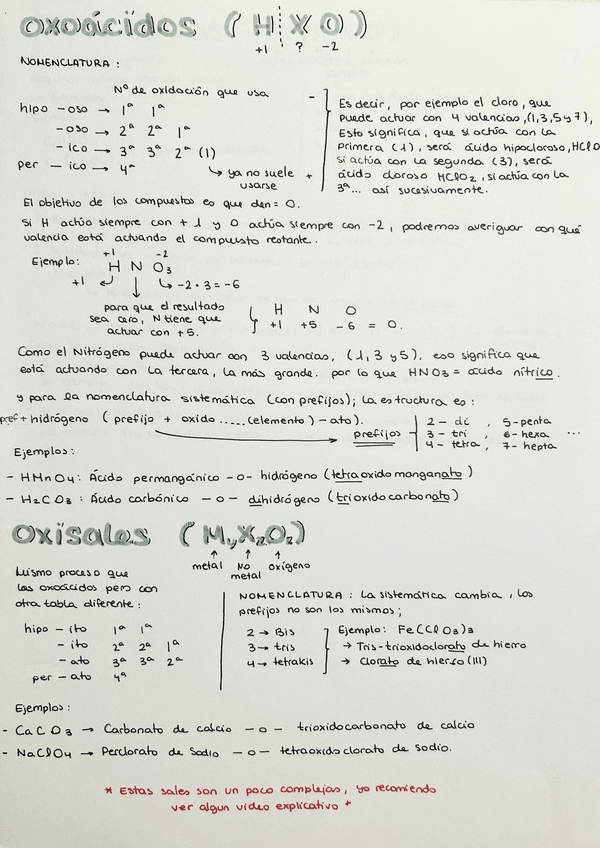 oxoácidos ( H X O )
+1 ? -2
NOMENCLATURA :
Nº de oxidación que usa
hipo - oso → 1ª 1ª
- oso → 2ª 2ª 1ª
- ico → 3ª 3ª 2ª (1)
per - ico → 4ª
↳ ya no suele
usarse
- Es decir, por ejemplo el cloro, que
puede actuar con 4 valencias, (1,3,5 y 7),
Esto significa, que si actúa con la
primera (1), será ácido hipocloroso, HClO
si actúa con la segunda (3), será
ácido cloroso HClO2, si actúa con la
3ª... así sucesivamente.
El objetivo de los compuestos es que den = 0.
Si H actúa siempre con +1 y O actúa siempre con -2, podremos averiguar con qué
valencia está actuando el compuesto restante.
Ejemplo:
+1 -2
H N O3
+1 ↲ ↓ ↳ -2 · 3 = -6
para que el resultado
sea cero, N tiene que
actuar con +5.
H N O
+1 +5 -6 = 0.
Como el Nitrógeno puede actuar con 3 valencias, (1, 3 y 5), eso significa que
está actuando con la tercera, la más grande. por lo que HNO3 = ácido nítrico.
y para la nomenclatura sistemática (con prefijos); la estructura es :
pref + hidrógeno ( prefijo + oxido ..... (elemento) - ato).
prefijos
2 - di , 5 - penta
3 - tri , 6 - hexa ...
4 - tetra , 7 - hepta
Ejemplos :
- HMnO4 : Ácido permangánico -o- hidrógeno (tetraoxidomanganato)
- H2CO3 : Ácido carbónico -o- dihidrógeno (trioxidocarbonato)
Oxisales ( MyXzOz)
↑ ↑ ↑
metal No oxígeno
metal
Mismo proceso que
los oxoácidos pero con
otra tabla diferente :
hipo - ito 1ª 1ª
- ito 2ª 2ª 1ª
- ato 3ª 3ª 2ª
per - ato 4ª
NOMENCLATURA : La sistemática cambia, los
prefijos no son los mismos ;
2 → Bis
3 → tris
4 → tetrakis
Ejemplo: Fe(ClO3)3
→ Tris-trioxidoclorato de hierro
→ Clorato de hierro (III)
Ejemplos :
- CaCO3 → Carbonato de calcio -o- trioxidocarbonato de calcio
- NaClO4 → Perclorato de Sodio -o- tetraoxidoclorato de sodio.
* Estas sales son un poco complejas, yo recomiendo
ver algun video explicativo *